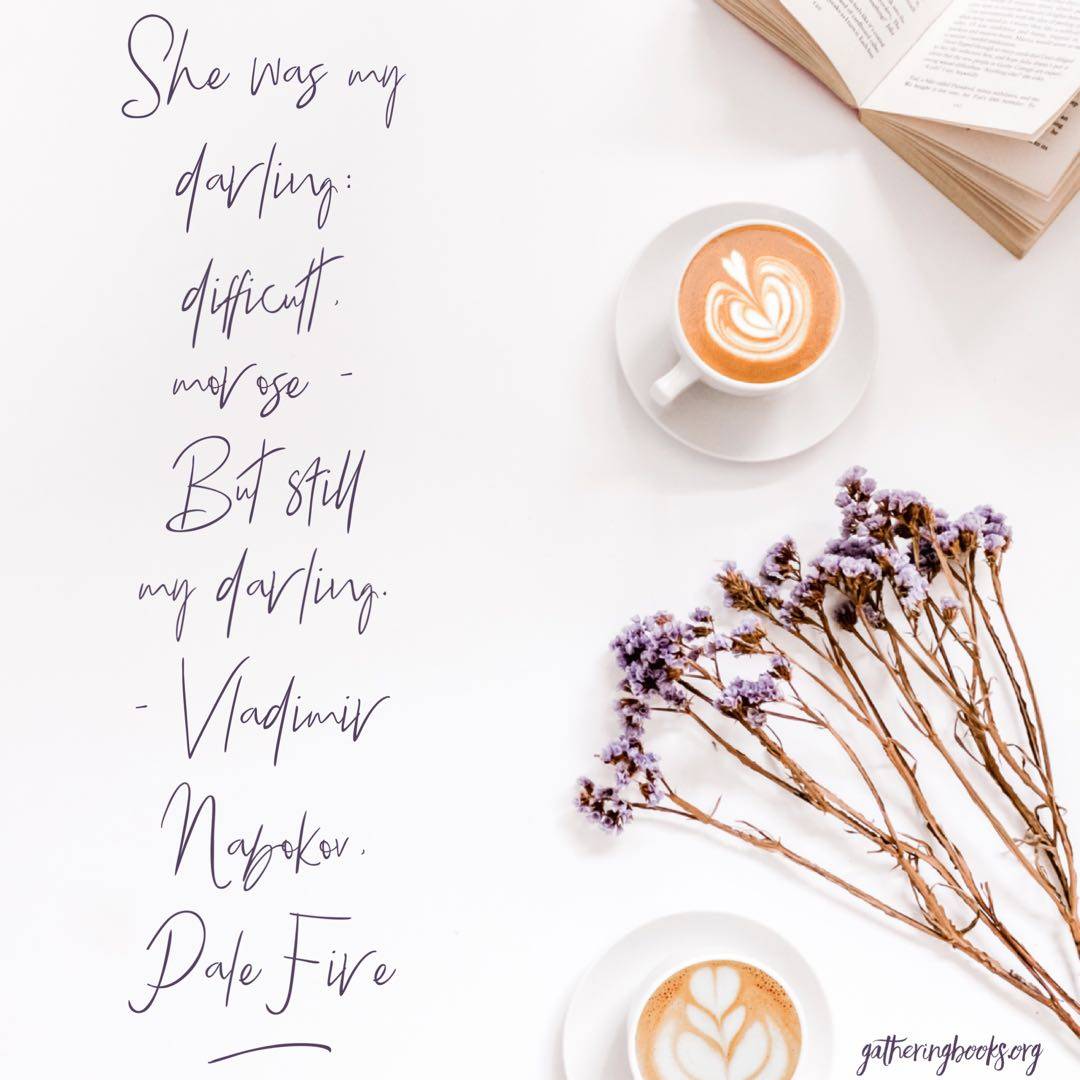 She was my
darling:
difficult,
morose -
But still
my darling.
- Vladimir
Nabokov,
Pale Fire
gatheringbooks.org